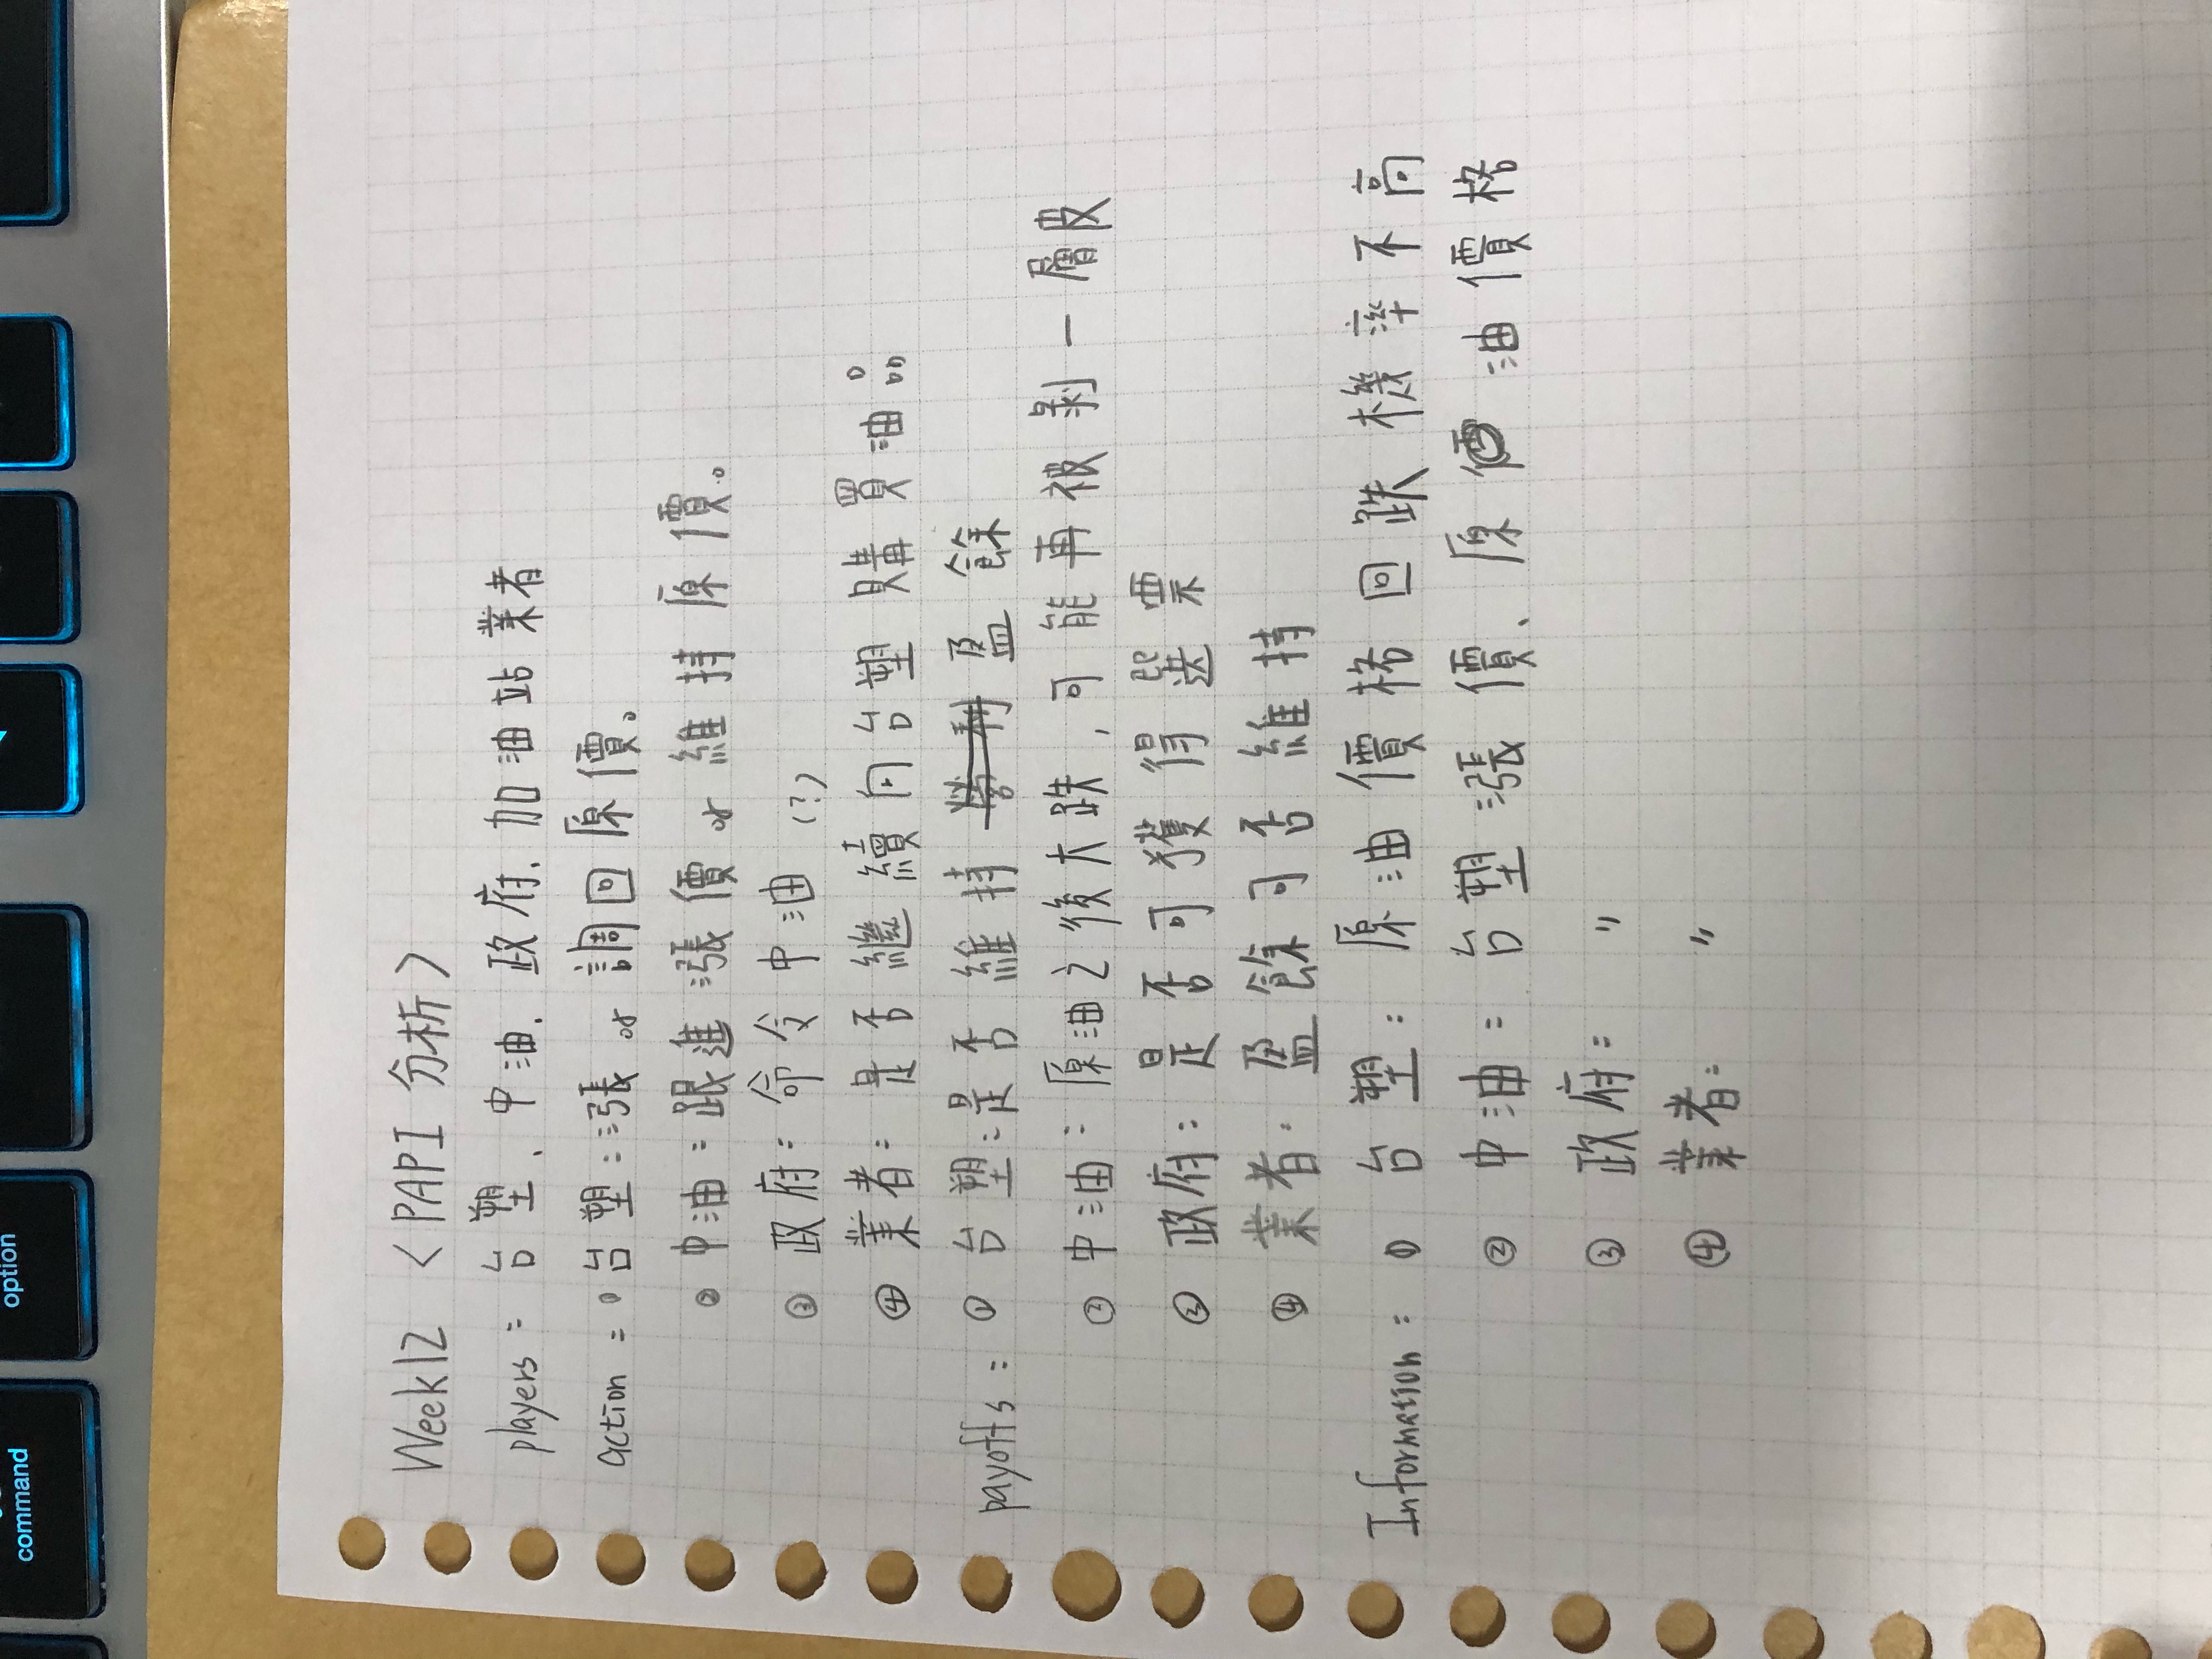 command
option
Week12 〈PAPI 分析〉
players = 台塑、中油、政府、加油站業者
action = ①台塑：漲 or 調回原價。
② 中油：跟進漲價 or 維持原價。
③ 政府：命令中油 (?)
④ 業者：是否繼續向台塑購買油品
payoffs = ① 台塑：是否維持營利盈餘
② 中油：原油之後大跌，可能再被剝一層皮
③ 政府：是否可獲得選票
④ 業者：盈餘可否維持
Information = ① 台塑：原油價格回跌機率不高
② 中油：台塑漲價、原油價格
③ 政府：〃
④ 業者：〃